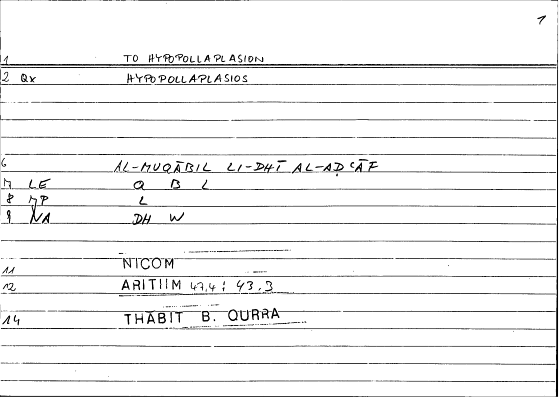 1
1 TO HYPOPOLLAPLASION
2 Qx HYPOPOLLAPLASIOS
6 AL-MUQĀBIL LI-DHĪ AL-AḌʿĀF
7 LE Q B L
8 MP L
9 NA DH W
11 NICOM
12 ARITIIM 47,4 ; 43.3
14 THĀBIT B. QURRA